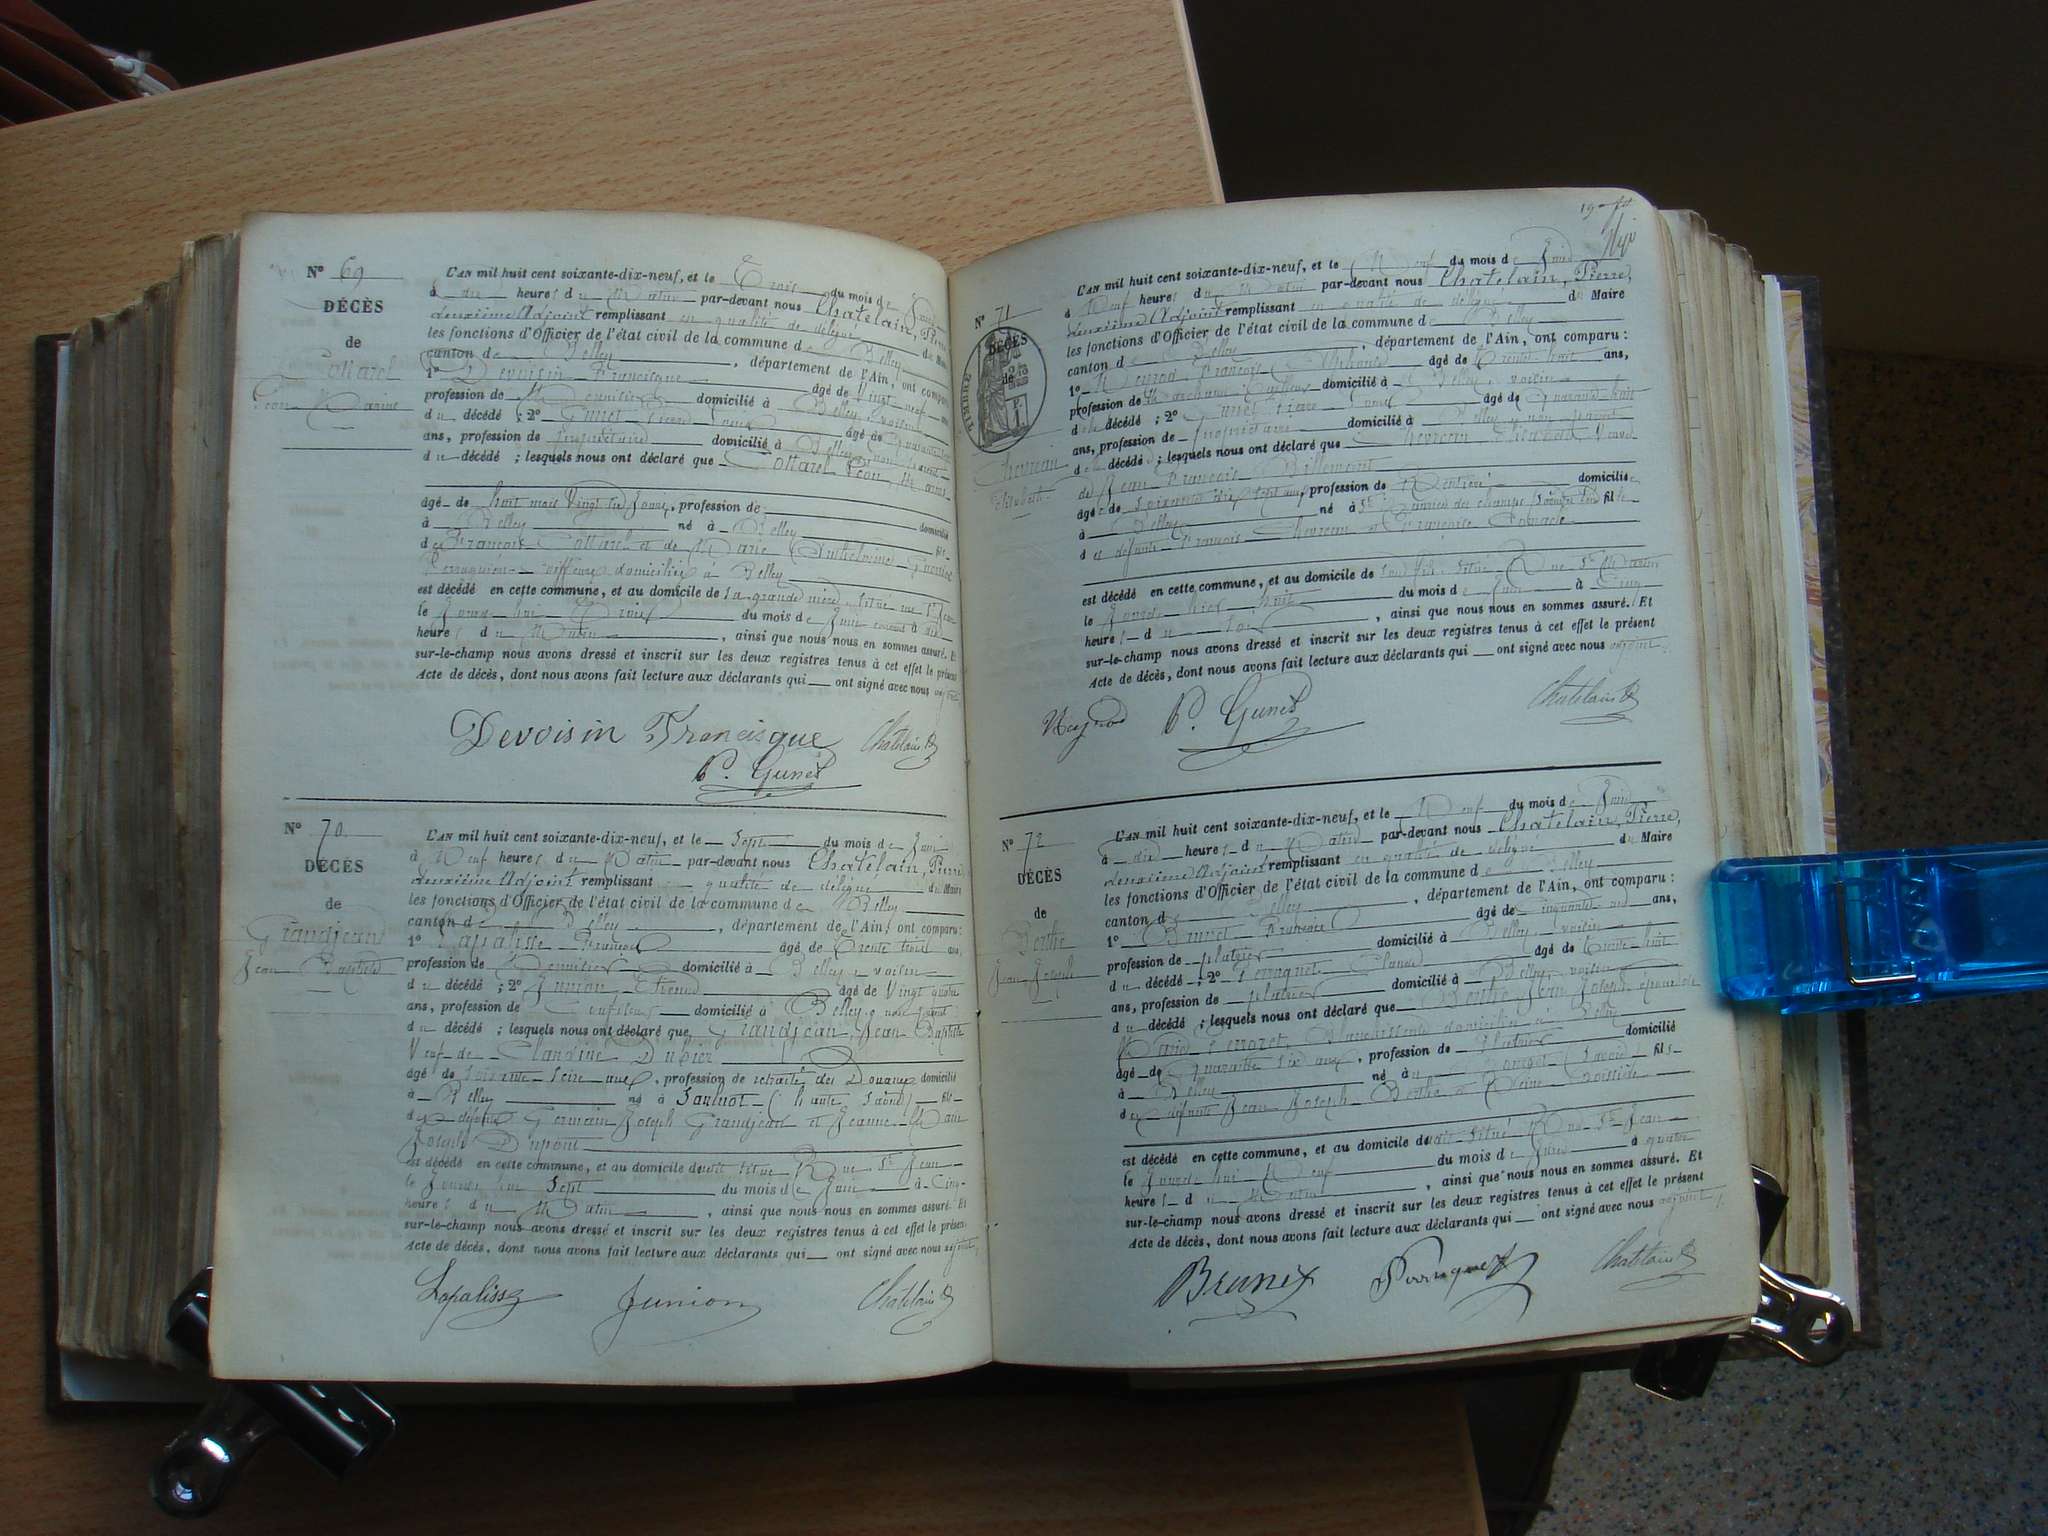 N° 69
DÉCÈS
de
Cottarel
Léon Marine
L'AN mil huit cent soixante-dix-neuf, et le Trois du mois de Juin
à dix heures du Matin par-devant nous Chatelain, Pierre,
deuxième Adjoint remplissant en qualité de délégué du Maire
les fonctions d'Officier de l'état civil de la commune de Belley
canton de Belley, département de l'Ain, ont comparu
1° Devoisin Francisque âgé de Vingt neuf ans
profession de Menuisier domicilié à Belley, voisin
du décédé ; 2° Gunet Pierre Louis âgé de quarante huit
ans, profession de propriétaire domicilié à Belley non parent
du décédé ; lesquels nous ont déclaré que Cottarel Léon, Marine
âgé de huit mois Vingt six Jours, profession de domicilié
à Belley né à Belley fils
de François Cottarel et de Marie
Perruquier coiffeur domiciliés à Belley
est décédé en cette commune, et au domicile de sa grande mère, situé rue St Jean
le Jourd'hui Trois du mois de Juin courant à six
heures du Matin, ainsi que nous nous en sommes assuré. Et
sur-le-champ nous avons dressé et inscrit sur les deux registres tenus à cet effet le présent
Acte de décès, dont nous avons fait lecture aux déclarants qui ont signé avec nous adjoint
Devoisin Francisque Chatelain
P. Gunet
N° 70
DÉCÈS
de
Grandjean
Jean Baptiste
L'AN mil huit cent soixante-dix-neuf, et le Sept du mois de Juin
à Neuf heures du Matin par-devant nous Chatelain, Pierre,
deuxième Adjoint remplissant qualité de délégué du Maire
les fonctions d'Officier de l'état civil de la commune de Belley
canton de Belley, département de l'Ain, ont comparu :
1° Lapalisse François âgé de Trente trois ans,
profession de Menuisier domicilié à Belley, voisin
du décédé ; 2° Junion Etienne âgé de Vingt quatre
ans, profession de Confiseur domicilié à Belley, non parent
du décédé ; lesquels nous ont déclaré que Grandjean, Jean Baptiste
Veuf de Claudine Dubier
âgé de Soixante Seize ans, profession de retraité des Douanes domicilié
à Belley né à (haute Saône) fils
des défunts Germain Joseph Grandjean et Jeanne
Joseph Dupont
est décédé en cette commune, et au domicile de situé Rue St Jean
le Jourd'hui Sept du mois de Juin à Cinq
heures du Matin, ainsi que nous nous en sommes assuré. Et
sur-le-champ nous avons dressé et inscrit sur les deux registres tenus à cet effet le présent
Acte de décès, dont nous avons fait lecture aux déclarants qui ont signé avec nous adjoint
Lapalisse Junion Chatelain
N° 71
DÉCÈS
de
TIMBRE
Chevreau
Elisabeth
L'AN mil huit cent soixante-dix-neuf, et le Neuf du mois de Juin
à Neuf heures du Matin par-devant nous Chatelain, Pierre,
deuxième Adjoint remplissant en qualité de délégué du Maire
les fonctions d'Officier de l'état civil de la commune de Belley
canton de Belley, département de l'Ain, ont comparu :
1° François âgé de Trente huit ans,
profession de Marchand domicilié à Belley, voisin
de la décédée ; 2° Gunet Pierre Louis âgé de Quarante huit
ans, profession de propriétaire domicilié à Belley non parent
de la décédée ; lesquels nous ont déclaré que Chevreau Elisabeth Veuve
de Jean François Billemont
âgée de Soixante dix Sept ans, profession de Rentière domiciliée
à Belley né à fille
des défunts François Chevreau et Françoise
est décédé en cette commune, et au domicile de son fils situé Rue St Martin
le Jour d'hier huit du mois de Juin à Cinq
heures du soir, ainsi que nous nous en sommes assuré. Et
sur-le-champ nous avons dressé et inscrit sur les deux registres tenus à cet effet le présent
Acte de décès, dont nous avons fait lecture aux déclarants qui ont signé avec nous adjoint
P. Gunet Chatelain
N° 72
DÉCÈS
de
Berthe
Jean Joseph
L'AN mil huit cent soixante-dix-neuf, et le Neuf du mois de Juin
à dix heures du Matin par-devant nous Chatelain, Pierre,
deuxième Adjoint remplissant en qualité de délégué du Maire
les fonctions d'Officier de l'état civil de la commune de Belley
canton de Belley, département de l'Ain, ont comparu :
1° Brunet âgé de Cinquante ans,
profession de plâtrier domicilié à Belley, voisin
du décédé ; 2° Perruquet Claude âgé de Trente huit
ans, profession de plâtrier domicilié à Belley, voisin
du décédé ; lesquels nous ont déclaré que Berthe Jean Joseph époux de
Marie Blanchisseuse domiciliée à Belley
âgé de Quarante Six ans, profession de Plâtrier domicilié
à Belley né à (Savoie) fils
des défunts Jean Joseph Berthe et Reine
est décédé en cette commune, et au domicile de situé Rue St Jean
le Jourd'hui Neuf du mois de Juin à quatre
heures du Matin, ainsi que nous nous en sommes assuré. Et
sur-le-champ nous avons dressé et inscrit sur les deux registres tenus à cet effet le présent
Acte de décès, dont nous avons fait lecture aux déclarants qui ont signé avec nous adjoint
Brunet Chatelain